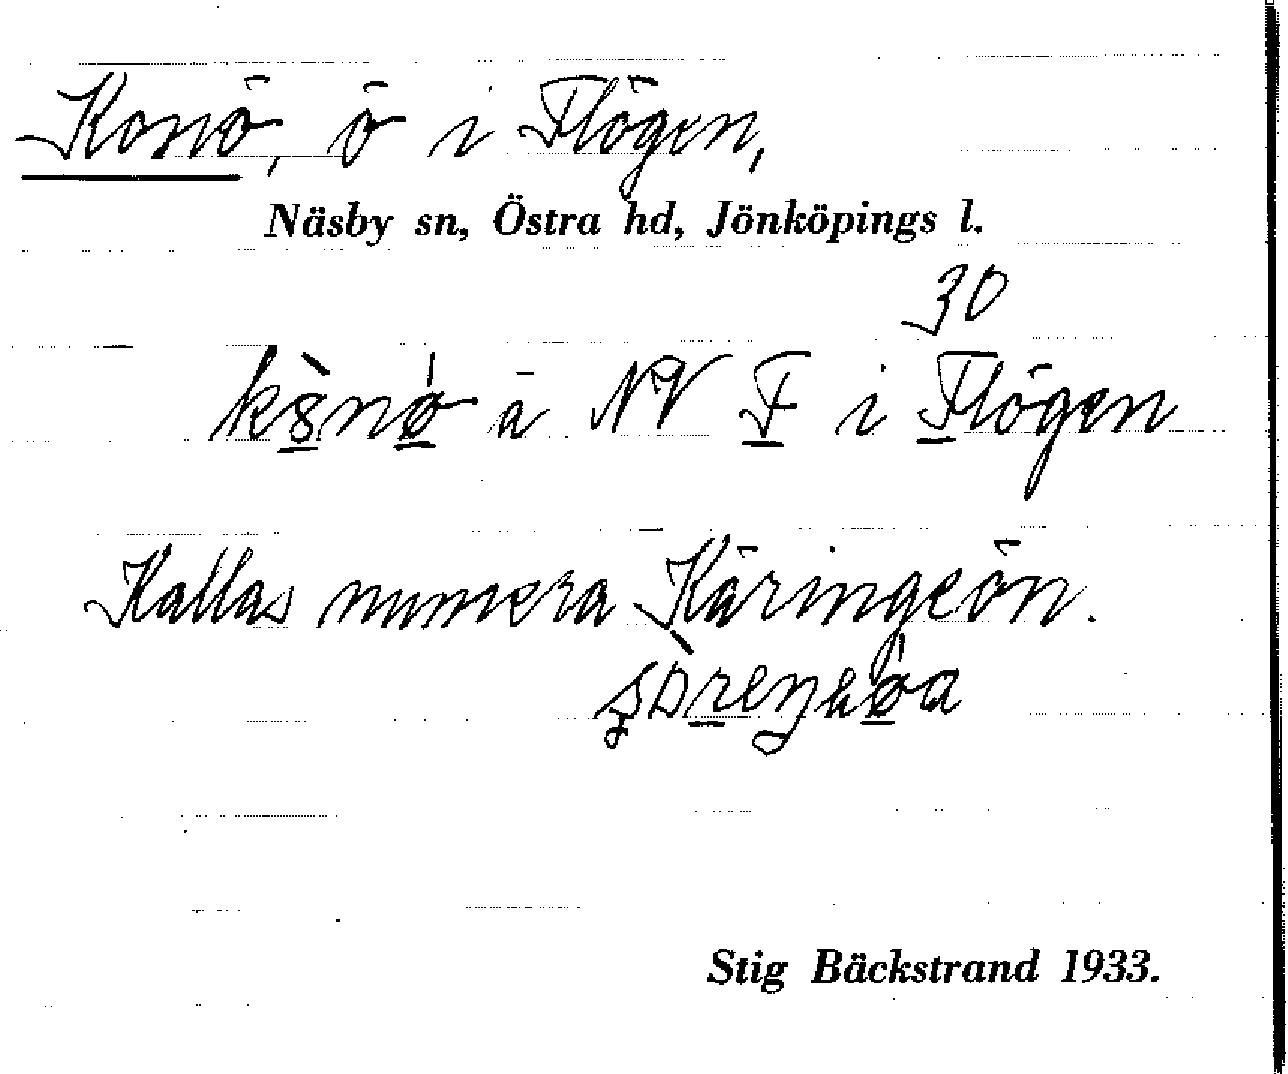 Konö, ö i Flögen,
Näsby sn, Östra hd, Jönköpings l.
30
i Flögen
Kallas numera Käringeön.
Stig Bäckstrand 1933.